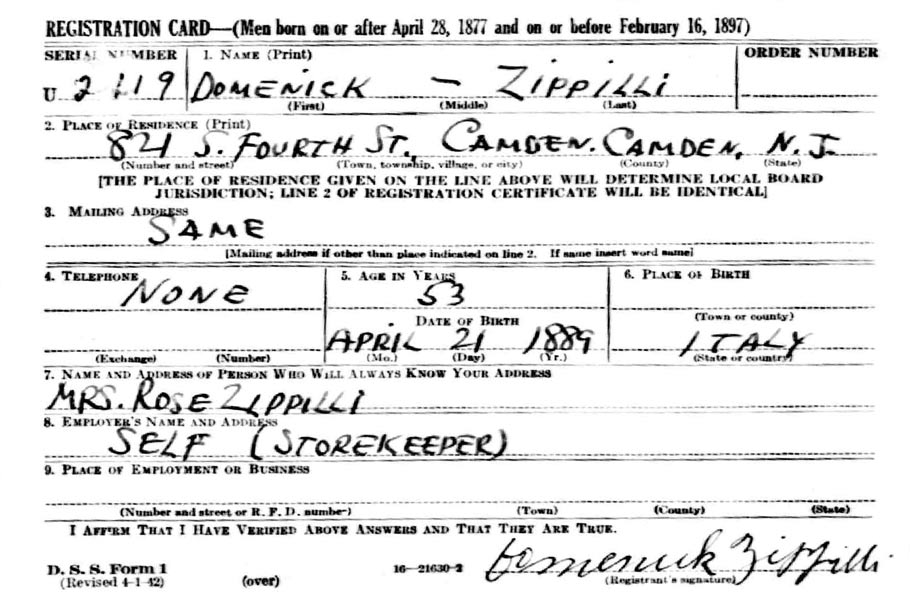 REGISTRATION CARD—(Men born on or after April 28, 1877 and on or before February 16, 1897)
SERIAL NUMBER 1. NAME (Print) ORDER NUMBER
U 2119 DOMENICK — ZIPPILLI
(First) (Middle) (Last)
2. PLACE OF RESIDENCE (Print)
821 S. FOURTH ST. CAMDEN. CAMDEN, N.J.
(Number and street) (Town, township, village, or city) (County) (State)
[THE PLACE OF RESIDENCE GIVEN ON THE LINE ABOVE WILL DETERMINE LOCAL BOARD
JURISDICTION; LINE 2 OF REGISTRATION CERTIFICATE WILL BE IDENTICAL]
3. MAILING ADDRESS
SAME
[Mailing address if other than place indicated on line 2. If same insert word same]
4. TELEPHONE 5. AGE IN YEARS 6. PLACE OF BIRTH
NONE 53
DATE OF BIRTH (Town or county)
APRIL 21 1889 ITALY
(Exchange) (Number) (Mo.) (Day) (Yr.) (State or country)
7. NAME AND ADDRESS OF PERSON WHO WILL ALWAYS KNOW YOUR ADDRESS
MRS. ROSE ZIPPILLI
8. EMPLOYER'S NAME AND ADDRESS
SELF (STOREKEEPER)
9. PLACE OF EMPLOYMENT OR BUSINESS
(Number and street or R. F. D. number) (Town) (County) (State)
I AFFIRM THAT I HAVE VERIFIED ABOVE ANSWERS AND THAT THEY ARE TRUE.
D. S. S. Form 1
(Revised 4-1-42) (over) 16—21630-2 Domenick Zippilli
(Registrant's signature)